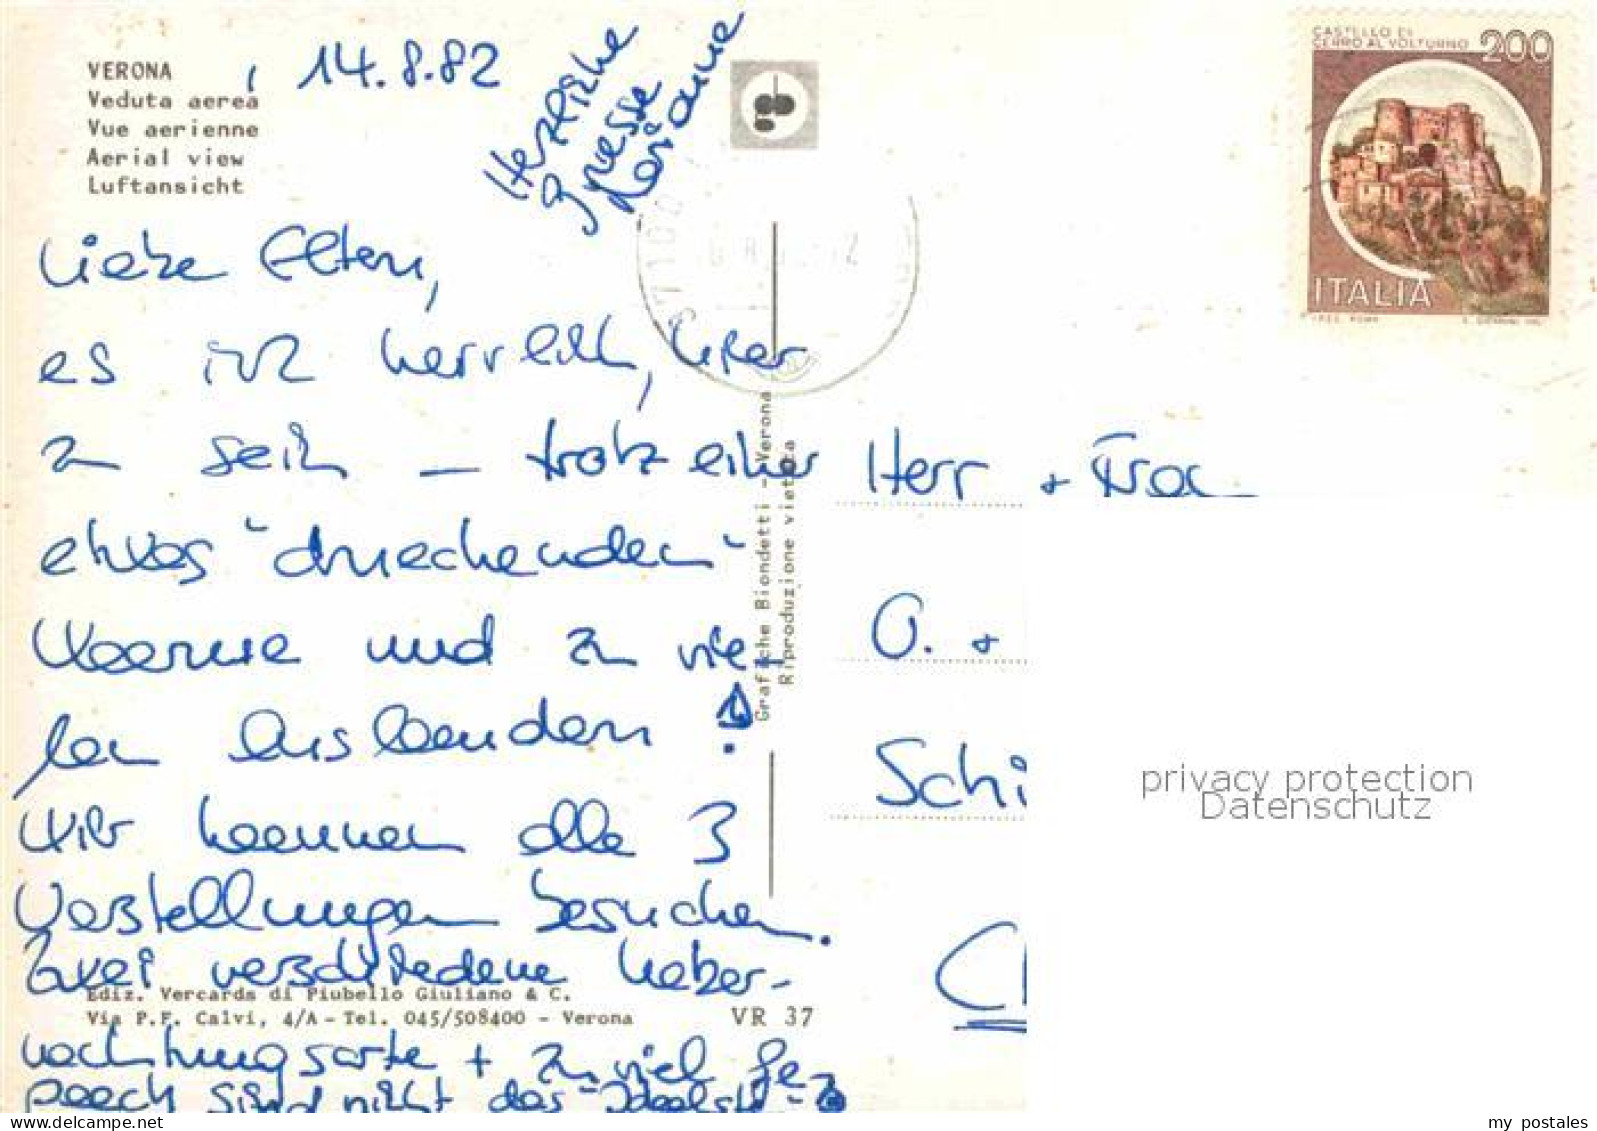 VERONA , 14.8.82
Veduta aerea
Vue aerienne
Aerial view
Luftansicht
Herzliche
Gruesse
Liebe Eltern,
es ist herrlich, hier
zu sein – trotz einer
etwas "drueckenden"
Waerme und zu vie-
len Auslaendern!
Wir koennen alle 3
Vorstellungen besuchen.
Zwei verschiedene Ueber-
nachtungsorte + zuviel Ge-
paeck sind nicht das
Ediz. Vercards di Piubello Giuliano & C.
Via P.F. Calvi, 4/A - Tel. 045/508400 - Verona
VR 37
Grafiche Biondetti - Verona
Riproduzione vietata
CASTELLO DI
CERRO AL VOLTURNO 200
ITALIA
Herr + Frau
O. +
Schi
privacy protection
Datenschutz
my postales